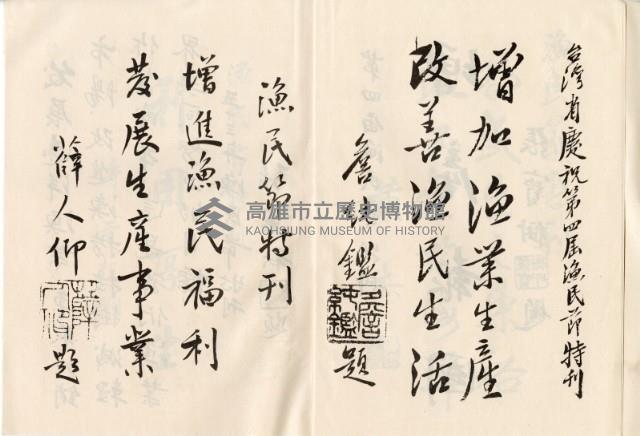 台灣省慶祝第四屆漁民節特刊
增加漁業生產
改善漁民生活
詹純鑑題
詹純鑑
漁民節特刊
增進漁民福利
發展生產事業
薛人仰題
薛人仰
高雄市立歷史博物館
KAOHSIUNG MUSEUM OF HISTORY